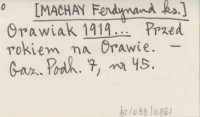 [MACHAY Ferdynand ks.]
Orawiak 1919... Przed
rokiem na Orawie. –
Gaz. Podh. 7, nr 45.